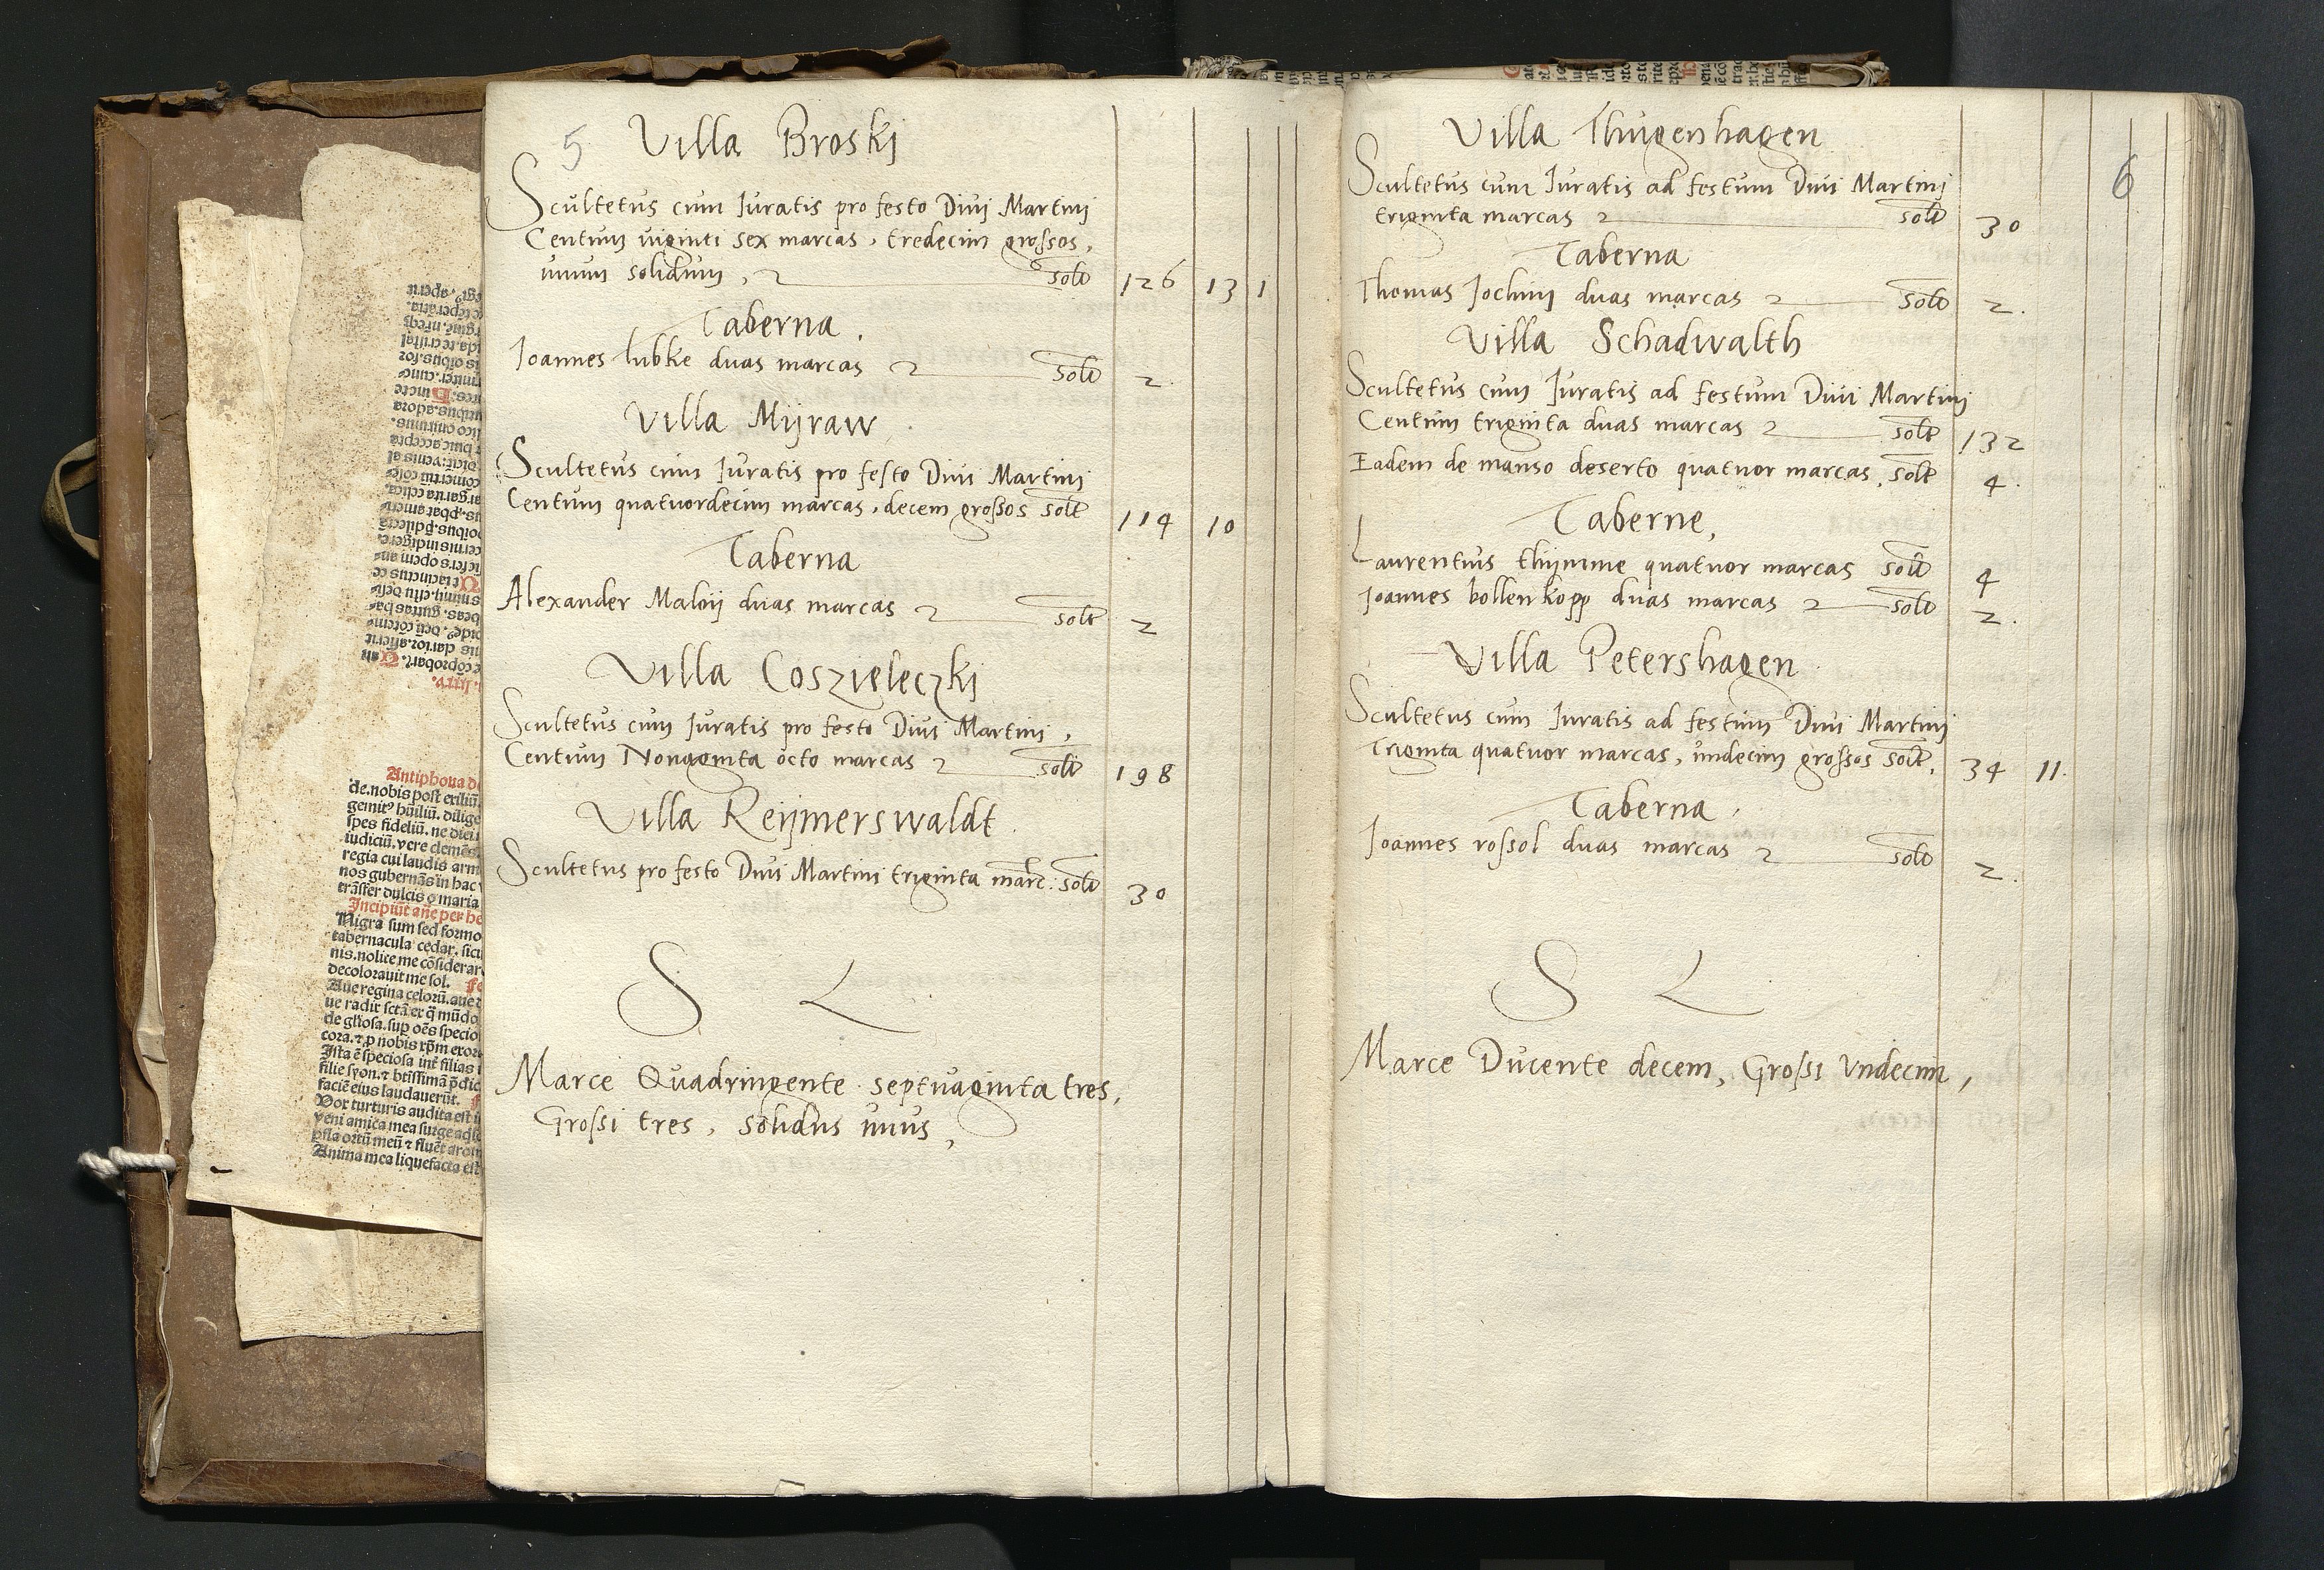 5
Villa Broskj
Scultetus cum Iuratis pro festo Diuj Martinj
Centum viginti sex marcas, tredecim grossos,
unum solidum, solt 126 13 1
Taberna
Joannes lubke duas marcas solt 2
Villa Mijraw
Scultetus cum Iuratis pro festo Diui Martinj
Centum quatuordecim marcas, decem grossos solt 114 10
Taberna
Alexander Maloij duas marcas solt 2
Villa Coszieleczkj
Scultetus cum Iuratis pro festo Diui Martinj,
Centum Nonaginta octo marcas solt 198
Villa Reijmerswaldt
Scultetus pro festo Diui Martini triginta marc: solt 30
S L
Marce Quadringente septuaginta tres,
Grossi tres, solidus unus,
6
Villa Thugenhagen
Scultetus cum Iuratis ad festum Diui Martinj
triginta marcas solt 30
Taberna
Thomas Jochim duas marcas solt 2.
Villa Schadwalth
Scultetus cum Iuratis ad festum Diui Martinj
Centum triginta duas marcas solt 132
Eadem de manso deserto quatuor marcas, solt 4
Taberne,
Laurentius thijmme quatuor marcas solt 4
Joannes bollenkopp duas marcas solt 2.
Villa Petershagen
Scultetus cum Iuratis ad festum Diui Martinj
Triginta quatuor marcas, undecim grossos solt, 34 11.
Taberna
Joannes rossol duas marcas solt 2.
S L
Marce Ducente decem, Grossi Vndecim,
Antiphona
de. nobis post exiliū.
spes fideliū. ne
iudiciū. vere clemēs
regia cui laudis
nos gubernās in hac
trāsfer dulcis o maria
Nigra sum sed formo
tabernacula cedar. sicu
nis. nolite me cōsiderar
decolorauit me sol.
Aue regina celorū. aue
de gliosa. sup oēs specio
faciē eius laudauerūt.
Vox turturis audita est
veni amica mea surge
Anima mea liquefacta est